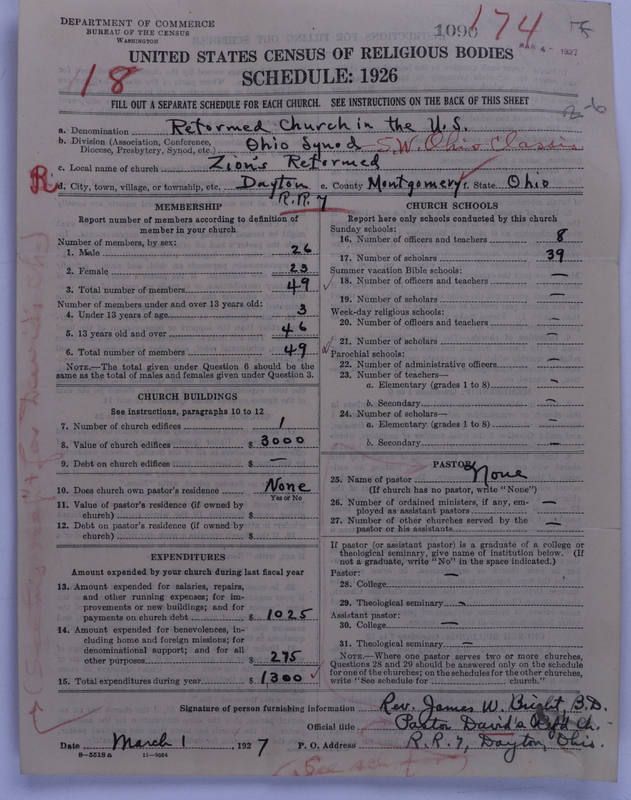 DEPARTMENT OF COMMERCE
BUREAU OF THE CENSUS
WASHINGTON
1096
174
MAR 4 - 1927
18
UNITED STATES CENSUS OF RELIGIOUS BODIES
SCHEDULE: 1926
FILL OUT A SEPARATE SCHEDULE FOR EACH CHURCH. SEE INSTRUCTIONS ON THE BACK OF THIS SHEET
2-6
a. Denomination Reformed Church in the U.S.
b. Division (Association, Conference, Diocese, Presbytery, Synod, etc.) Ohio Synod S.W. Ohio Classis
c. Local name of church Zion's Reformed
R
d. City, town, village, or township, etc. Dayton e. County Montgomery f. State Ohio
R.R. 7
MEMBERSHIP
Report number of members according to definition of
member in your church
Number of members, by sex:
1. Male 26
2. Female 23
3. Total number of members 49
Number of members under and over 13 years old:
4. Under 13 years of age 3
5. 13 years old and over 46
6. Total number of members 49
NOTE.—The total given under Question 6 should be
same as the total of males and females given under Question 3.
CHURCH BUILDINGS
See instructions, paragraphs 10 to 12
7. Number of church edifices 1
8. Value of church edifices $ 3000
9. Debt on church edifices $ —
10. Does church own pastor's residence None
Yes or No
11. Value of pastor's residence (if owned by
church) $
12. Debt on pastor's residence (if owned by
church) $
EXPENDITURES
Amount expended by your church during last fiscal year
13. Amount expended for salaries, repairs,
and other running expenses; for im-
provements or new buildings; and for
payments on church debt $ 1025
14. Amount expended for benevolences, in-
cluding home and foreign missions; for
denominational support; and for all
other purposes $ 275
15. Total expenditures during year $ 1300
CHURCH SCHOOLS
Report here only schools conducted by this church
Sunday schools:
16. Number of officers and teachers 8
17. Number of scholars 39
Summer vacation Bible schools:
18. Number of officers and teachers —
19. Number of scholars —
Week-day religious schools:
20. Number of officers and teachers —
21. Number of scholars —
Parochial schools:
22. Number of administrative officers —
23. Number of teachers—
a. Elementary (grades 1 to 8) —
b. Secondary —
24. Number of scholars—
a. Elementary (grades 1 to 8) —
b. Secondary —
PASTOR
25. Name of pastor None
(If church has no pastor, write "None")
26. Number of ordained ministers, if any, em-
ployed as assistant pastors —
27. Number of other churches served by the
pastor or his assistants —
If pastor (or assistant pastor) is a graduate of a college or
theological seminary, give name of institution below. (If
not a graduate, write "No" in the space indicated.)
Pastor: —
28. College
29. Theological seminary —
Assistant pastor:
30. College —
31. Theological seminary —
NOTE.—Where one pastor serves two or more churches,
Questions 28 and 29 should be answered only on the schedule
for one of the churches; on the schedules for the other churches,
write "See schedule for ............ church."
Signature of person furnishing information Rev. James W. Bright, B.D.
Official title Pastor David's Ref'd Ch.
Date March 1, 1927 P. O. Address R.R. 7, Dayton, Ohio.
8-5518a 11-9084